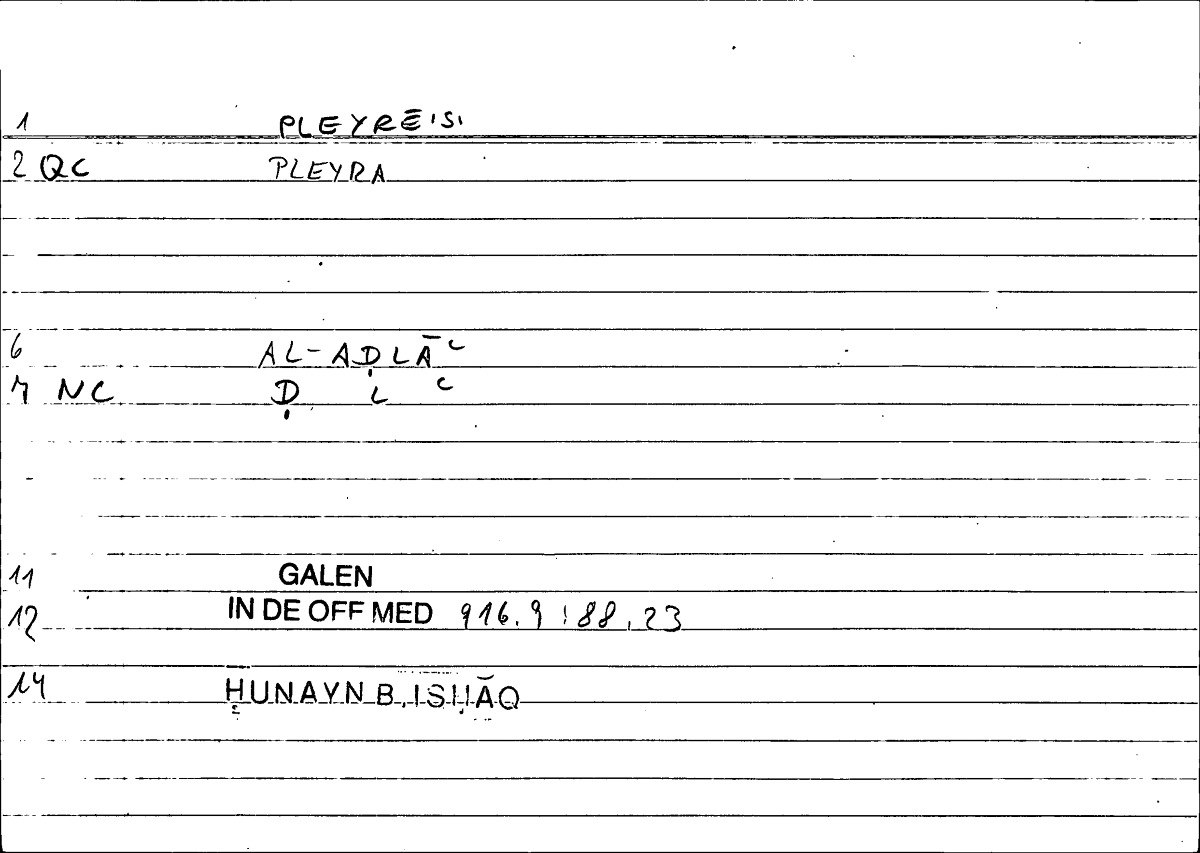 1 PLEYRĒ'S'
2 QC PLEYRA
6 AL-AḌLĀʿ
7 NC Ḍ L ʿ
11 GALEN
12 IN DE OFF MED 916.9:88.23
14 ḤUNAYN B. ISḤĀQ